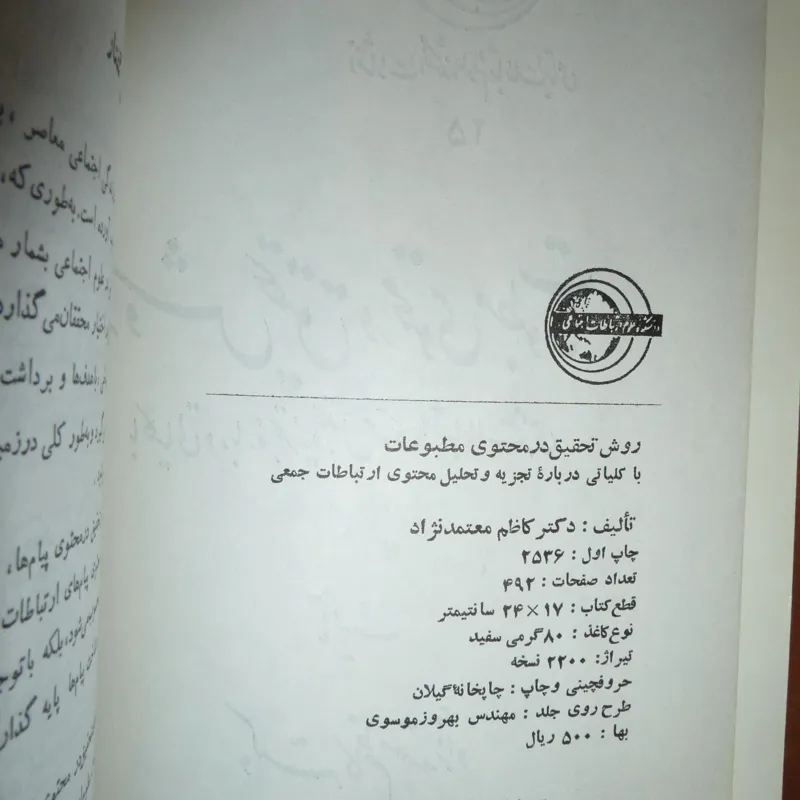 دانشکده علوم ارتباطات اجتماعی
روش تحقیق در محتوی مطبوعات
با کلیاتی دربارهٔ تجزیه و تحلیل محتوی ارتباطات جمعی
تألیف : دکتر کاظم معتمدنژاد
چاپ اول : ۲۵۳۶
تعداد صفحات : ۴۹۲
قطع کتاب : ۱۷×۲۴ سانتیمتر
نوع کاغذ : ۸۰ گرمی سفید
تیراژ: ۲۲۰۰ نسخه
حروفچینی و چاپ : چاپخانهٔ گیلان
طرح روی جلد : مهندس بهروز موسوی
بها : ۵۰۰ ریال
اجتماعی معاصر ،
است، به‌طوری که،
علوم اجتماعی بشمار
اختیار محققان می گذارد
با هدفها و برداشت
و به‌طور کلی در زمی
در محتوی پیام‌ها،
پیام‌های ارتباطات
بلکه با توج
پیام‌ها پایه گذار
در محتوی